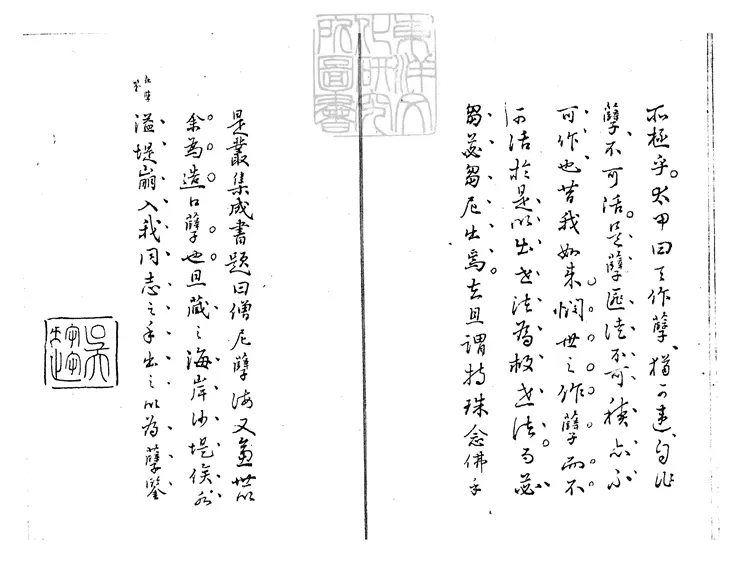 不極乎。太甲曰天作孽、猶可違、自作
孽不可活。是孽匪啻不可積亦不
可作也昔我如来憫世之作孽而不
可活於是以出世法為救世法。而苾
芻苾芻尼出焉。玄且謂持珠念佛手
是叢集成書題曰僧尼孽海又盧世以
余為造口孽也且藏之海岸沙堤俟水
溢堤崩入我同志之手出之以為孽鑒
東洋文
化研究
所圖書